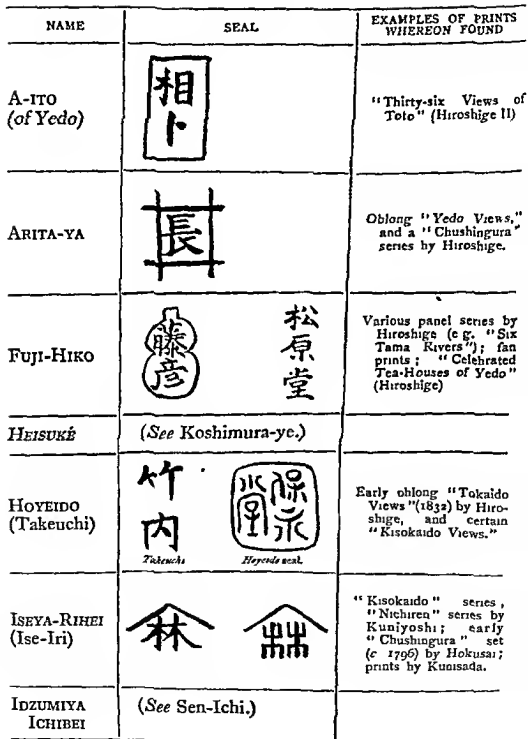 NAME
SEAL
EXAMPLES OF PRINTS
WHEREON FOUND
A-ITO
(of Yedo)
相
ト
"Thirty-six Views of
Toto" (Hiroshige II)
ARITA-YA
長
Oblong "Yedo Views,"
and a "Chushingura"
series by Hiroshige.
FUJI-HIKO
藤
彦
松
原
堂
Various panel series by
Hiroshige (e g. "Six
Tama Rivers"); fan
prints; "Celebrated
Tea-Houses of Yedo"
(Hiroshige)
HEISUKÉ
(See Koshimura-ye.)
HOYEIDO
(Takeuchi)
竹
内
Takeuchi
保永
堂
Hoyeido seal.
Early oblong "Tokaido
Views"(1832) by Hiro-
shige, and certain
"Kisokaido Views."
ISEYA-RIHEI
(Ise-Iri)
林
"Kisokaido" series,
"Nichiren" series by
Kuniyoshi; early
"Chushingura" set
(c 1796) by Hokusai;
prints by Kunisada.
IDZUMIYA
ICHIBEI
(See Sen-Ichi.)